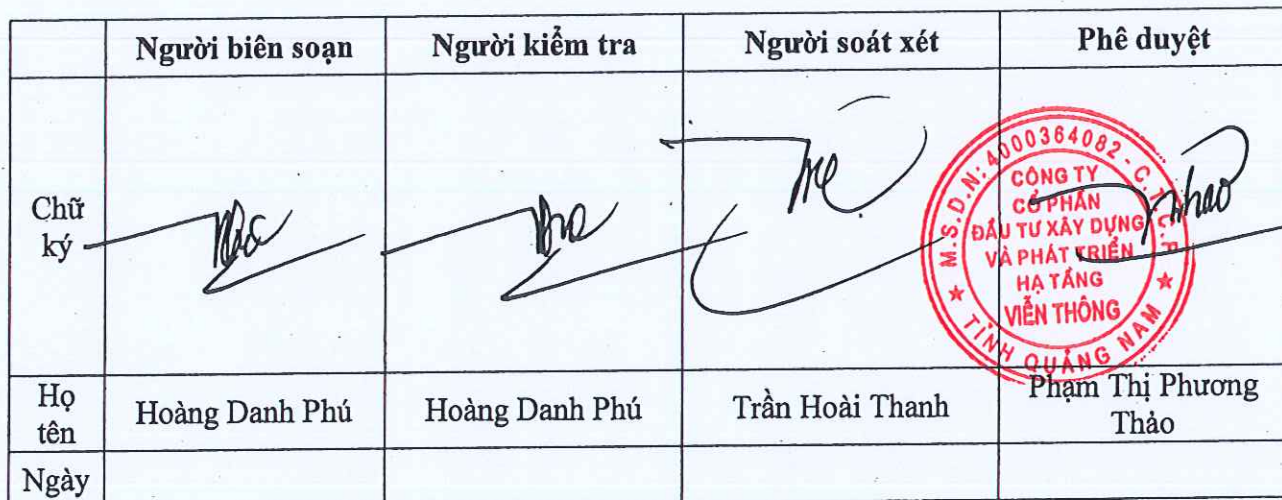 Người biên soạn Người kiểm tra Người soát xét Phê duyệt
Chữ
ký
M.S.D.N: 4000364082 - C.T.C.P
CÔNG TY
CỔ PHẦN
ĐẦU TƯ XÂY DỰNG
VÀ PHÁT TRIỂN
HẠ TẦNG
VIỄN THÔNG
★ TỈNH QUẢNG NAM ★
Họ
tên
Hoàng Danh Phú Hoàng Danh Phú Trần Hoài Thanh Phạm Thị Phương
Thảo
Ngày